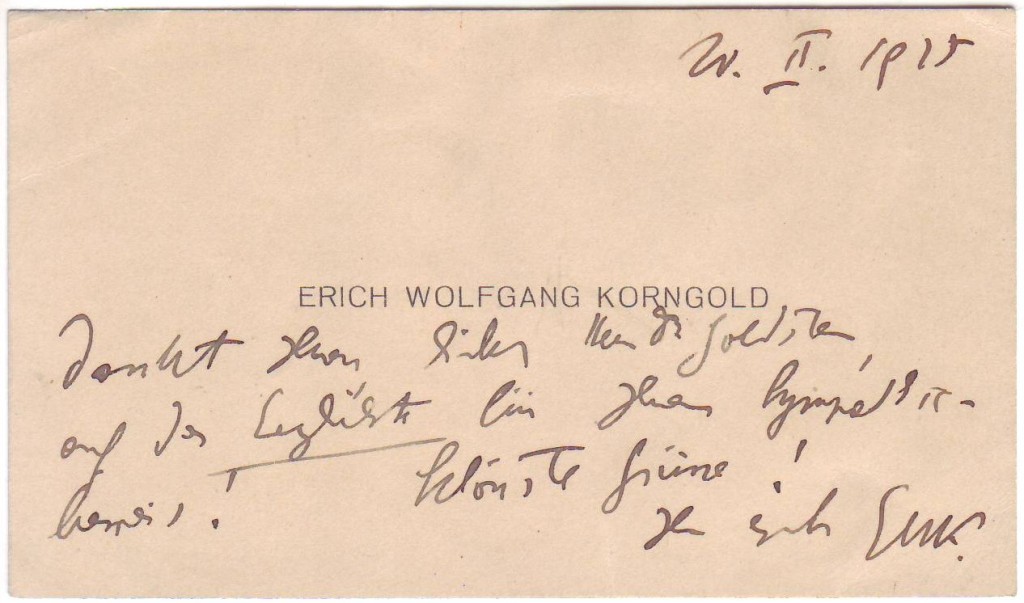 II. 19
ERICH WOLFGANG KORNGOLD
dankt Ihnen lieber Herr Dr Goldstein,
auf das herzlichste für Ihren Sympathie-
beweis! Schönste Grüsse!
Ihr EWK.